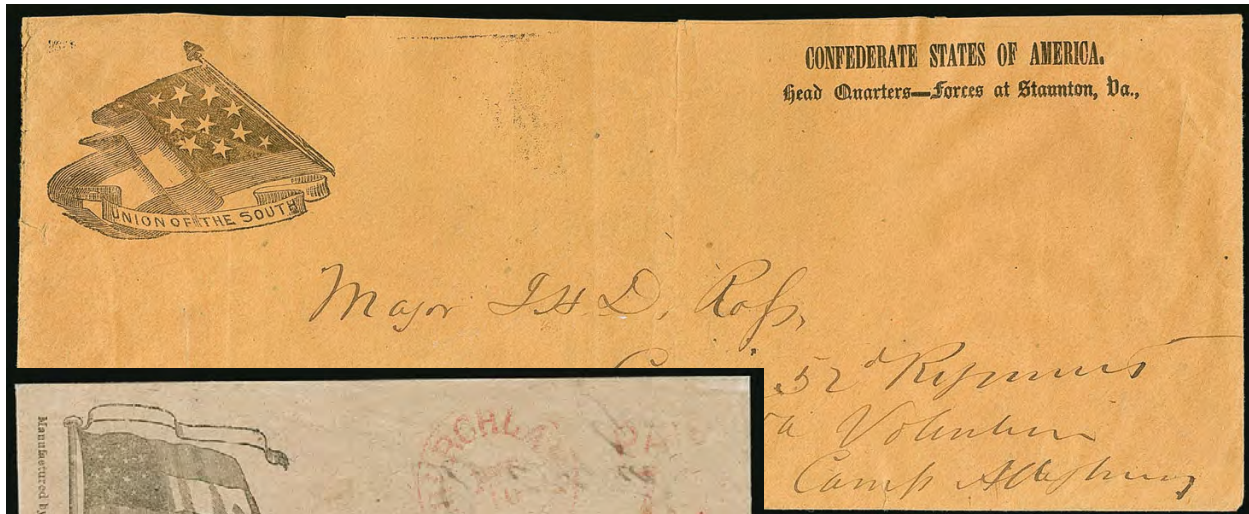 CONFEDERATE STATES OF AMERICA.
Head Quarters—Forces at Staunton, Va.,
UNION OF THE SOUTH
Major J H D. Ross,
52d Regiment
Va Volunteers
Camp Allegheny
Manufactured by
PAID